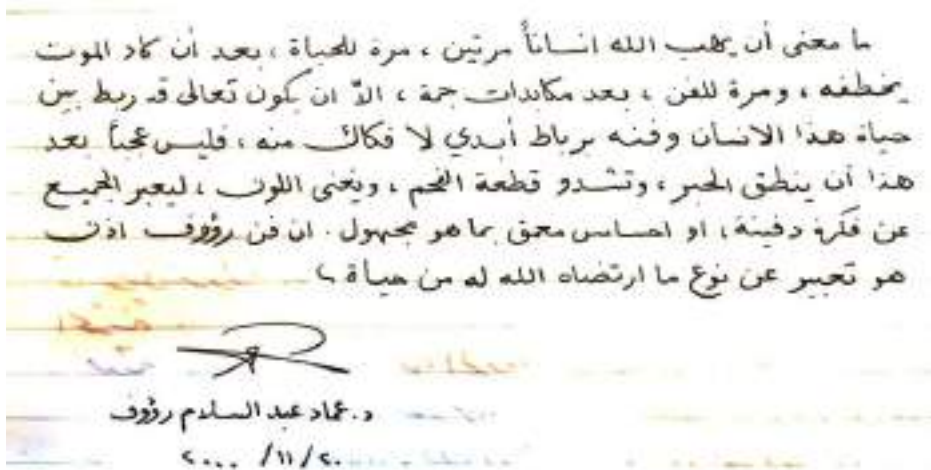 ما معنى أن يهب الله انساناً مرتين ، مرة للحياة ، بعد أن كاد الموت
يخطفه ، ومرة للفن ، بعد مكابدات جمة ، الاّ ان يكون تعالى قد ربط بين
حياة هذا الانسان وفنه برباط أبدي لا فكاك منه ، فليس عجباً بعد
هذا أن ينطق الحبر ، وتشدو قطعة الفحم ، ويغنى اللون ، ليعبر الجميع
عن فكرة دفينة ، او احساس معمق بما هو مجهول . ان فن رؤوف اذن
هو تعبير عن نوع ما ارتضاه الله له من حياة
د. عماد عبد السلام رؤوف
٢٠ / ١١ / ٢٠٠٠